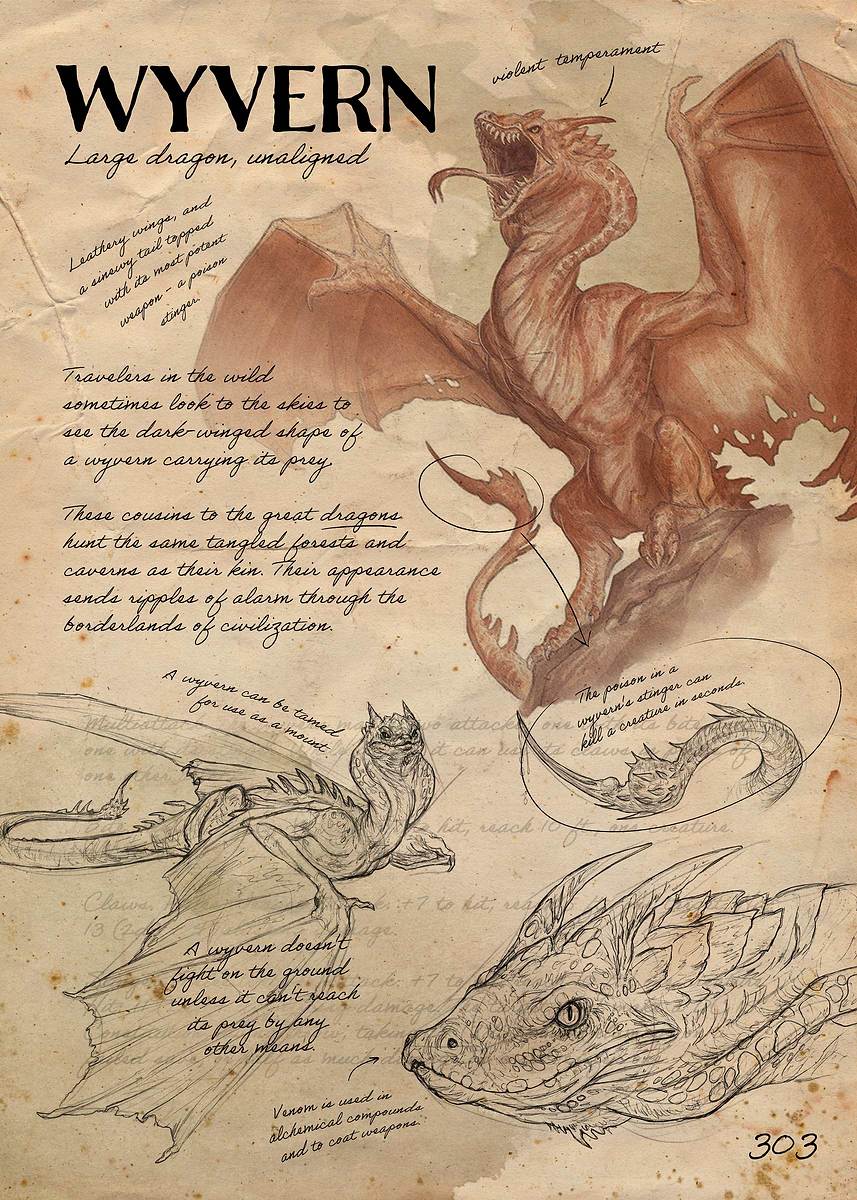 WYVERN
Large dragon, unaligned
violent temperament
Leathery wings, and
a sinewy tail topped
with its most potent
weapon - a poison
stinger.
Travelers in the wild
sometimes look to the skies to
see the dark-winged shape of
a wyvern carrying its prey.
These cousins to the great dragons
hunt the same tangled forests and
caverns as their kin. Their appearance
sends ripples of alarm through the
borderlands of civilization.
A wyvern can be tamed
for use as a mount
The poison in a
wyvern's stinger can
kill a creature in seconds.
Multiatta two attacks: one its bite
one with it can use its claws of
one other
hit, reach 10 ft., one creature.
Claws. +7 to hit, rea
13 (2d
+7 to
damage
A wyvern doesn't
fight on the ground
unless it can't reach
its prey by any
other means.
Venom is used in
alchemical compounds
and to coat weapons.
303